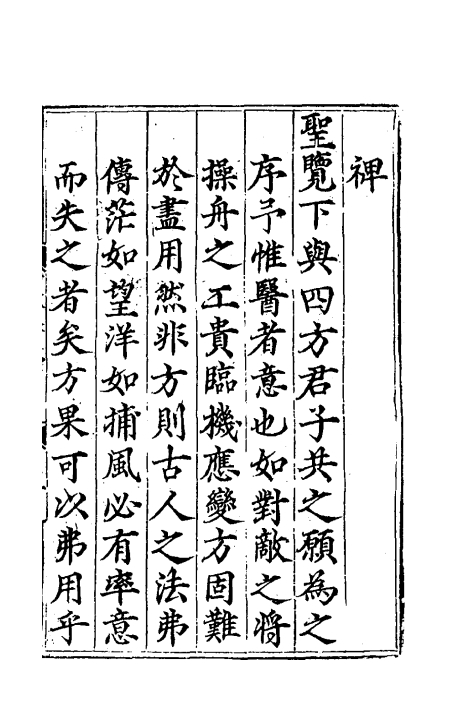 裨
聖覽下與四方君子共之願為之
序予惟醫者意也如對敵之將
操舟之工貴臨機應變方固難
於盡用然非方則古人之法弗
傳茫如望洋如捕風必有率意
而失之者矣方果可以弗用乎